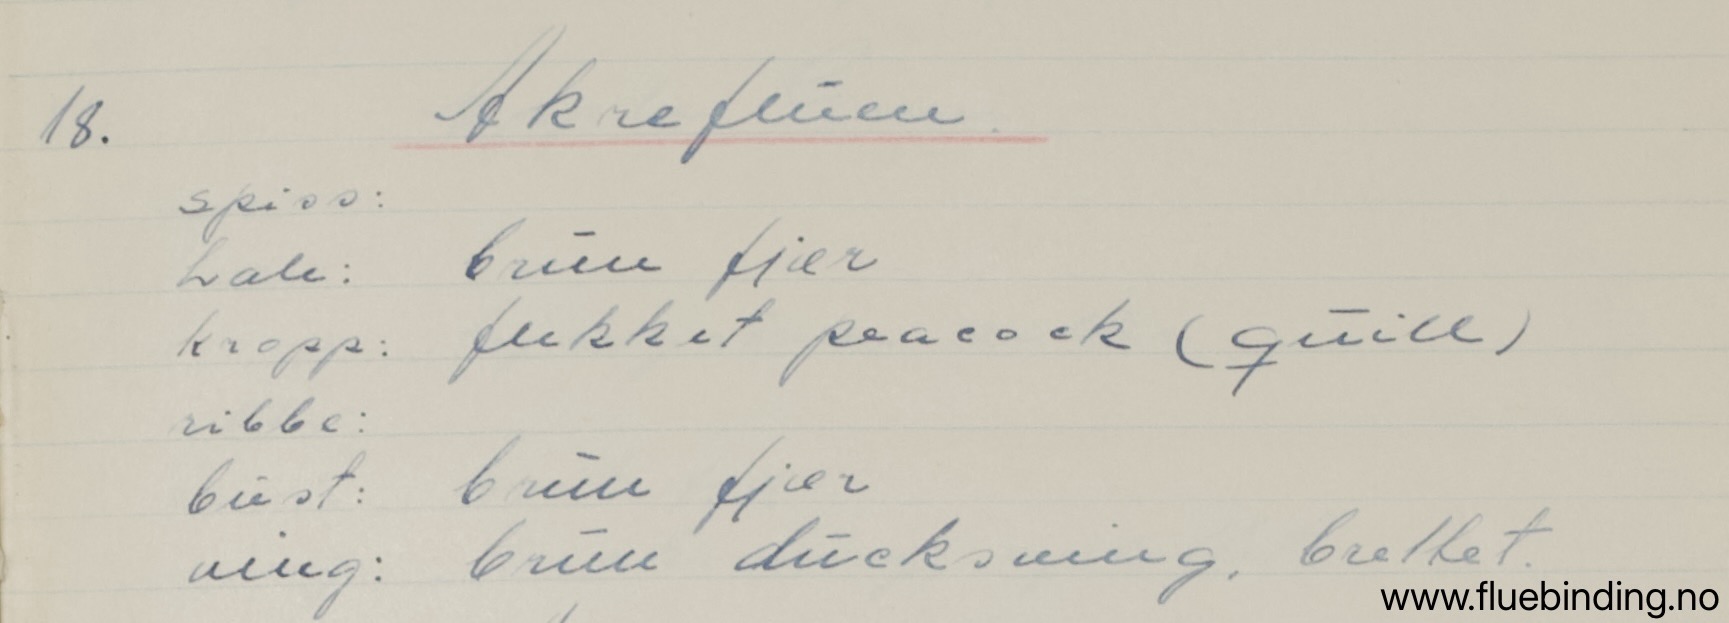 18. Akrefluen.
spiss:
hale: brun fjær
kropp: flekket peacock (quill)
ribbe:
bust: brun fjær
ving: brun ducksving, brettet.
www.fluebinding.no